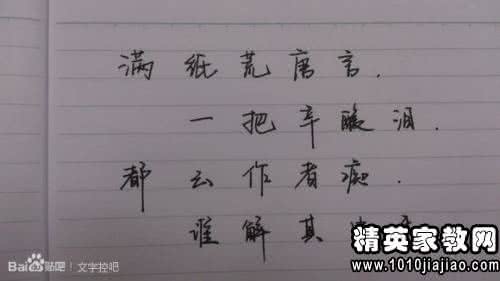 满纸荒唐言.
一把辛酸泪.
都云作者痴.
谁解其
精英家教网
www.1010jiajiao.com
Bai du 贴吧 | 文字控吧